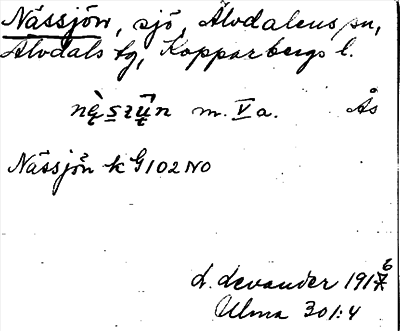 Nässjön, sjö, Älvdalens sn,
Älvdals tg, Kopparbergs l.
m. V a. Ås
Nässjön k G102NO
L. Levander 1916
Ulma 301:4